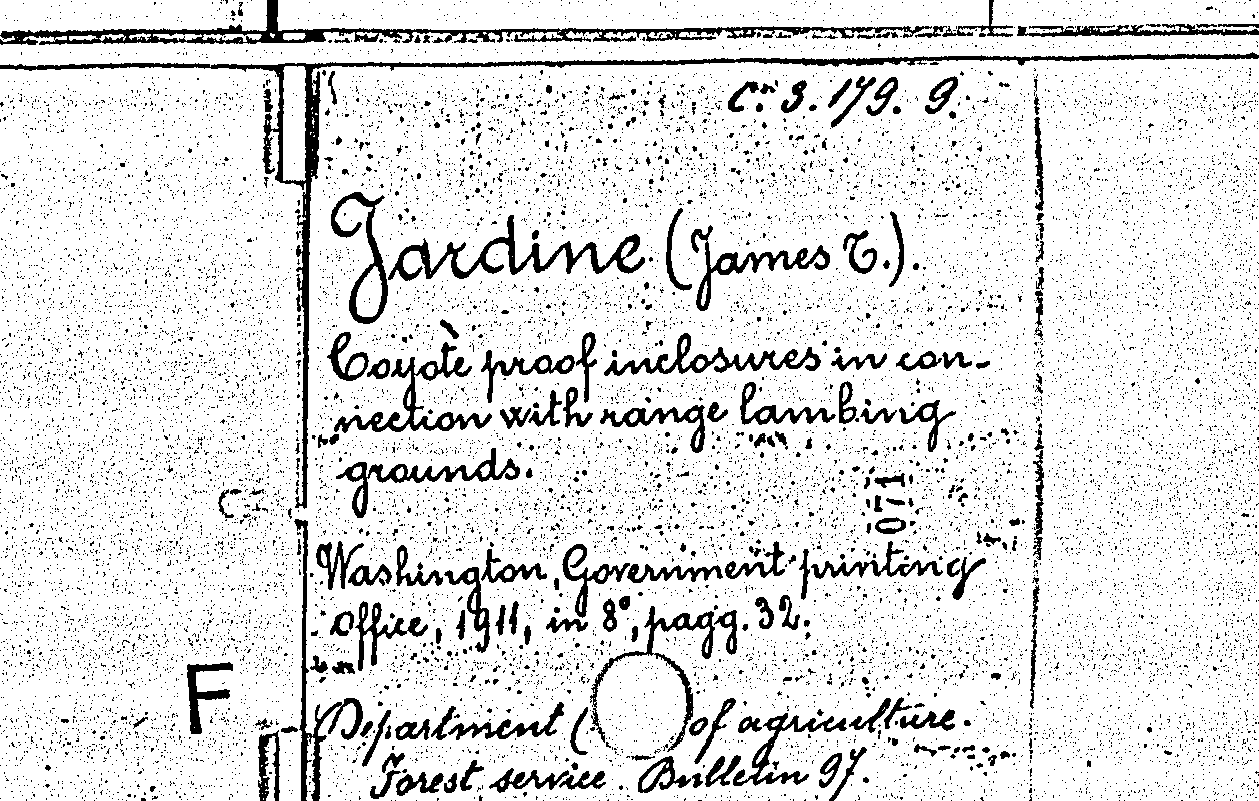 Cⁿ. 3. 179. 9.
Jardine (James T.).
Coyotè proof inclosures in con-
nection with range lambing
grounds.
071
Washington, Government printing
office, 1911, in 8°, pagg. 32.
F
Department ( of agriculture.
Forest service. Bulletin 97.